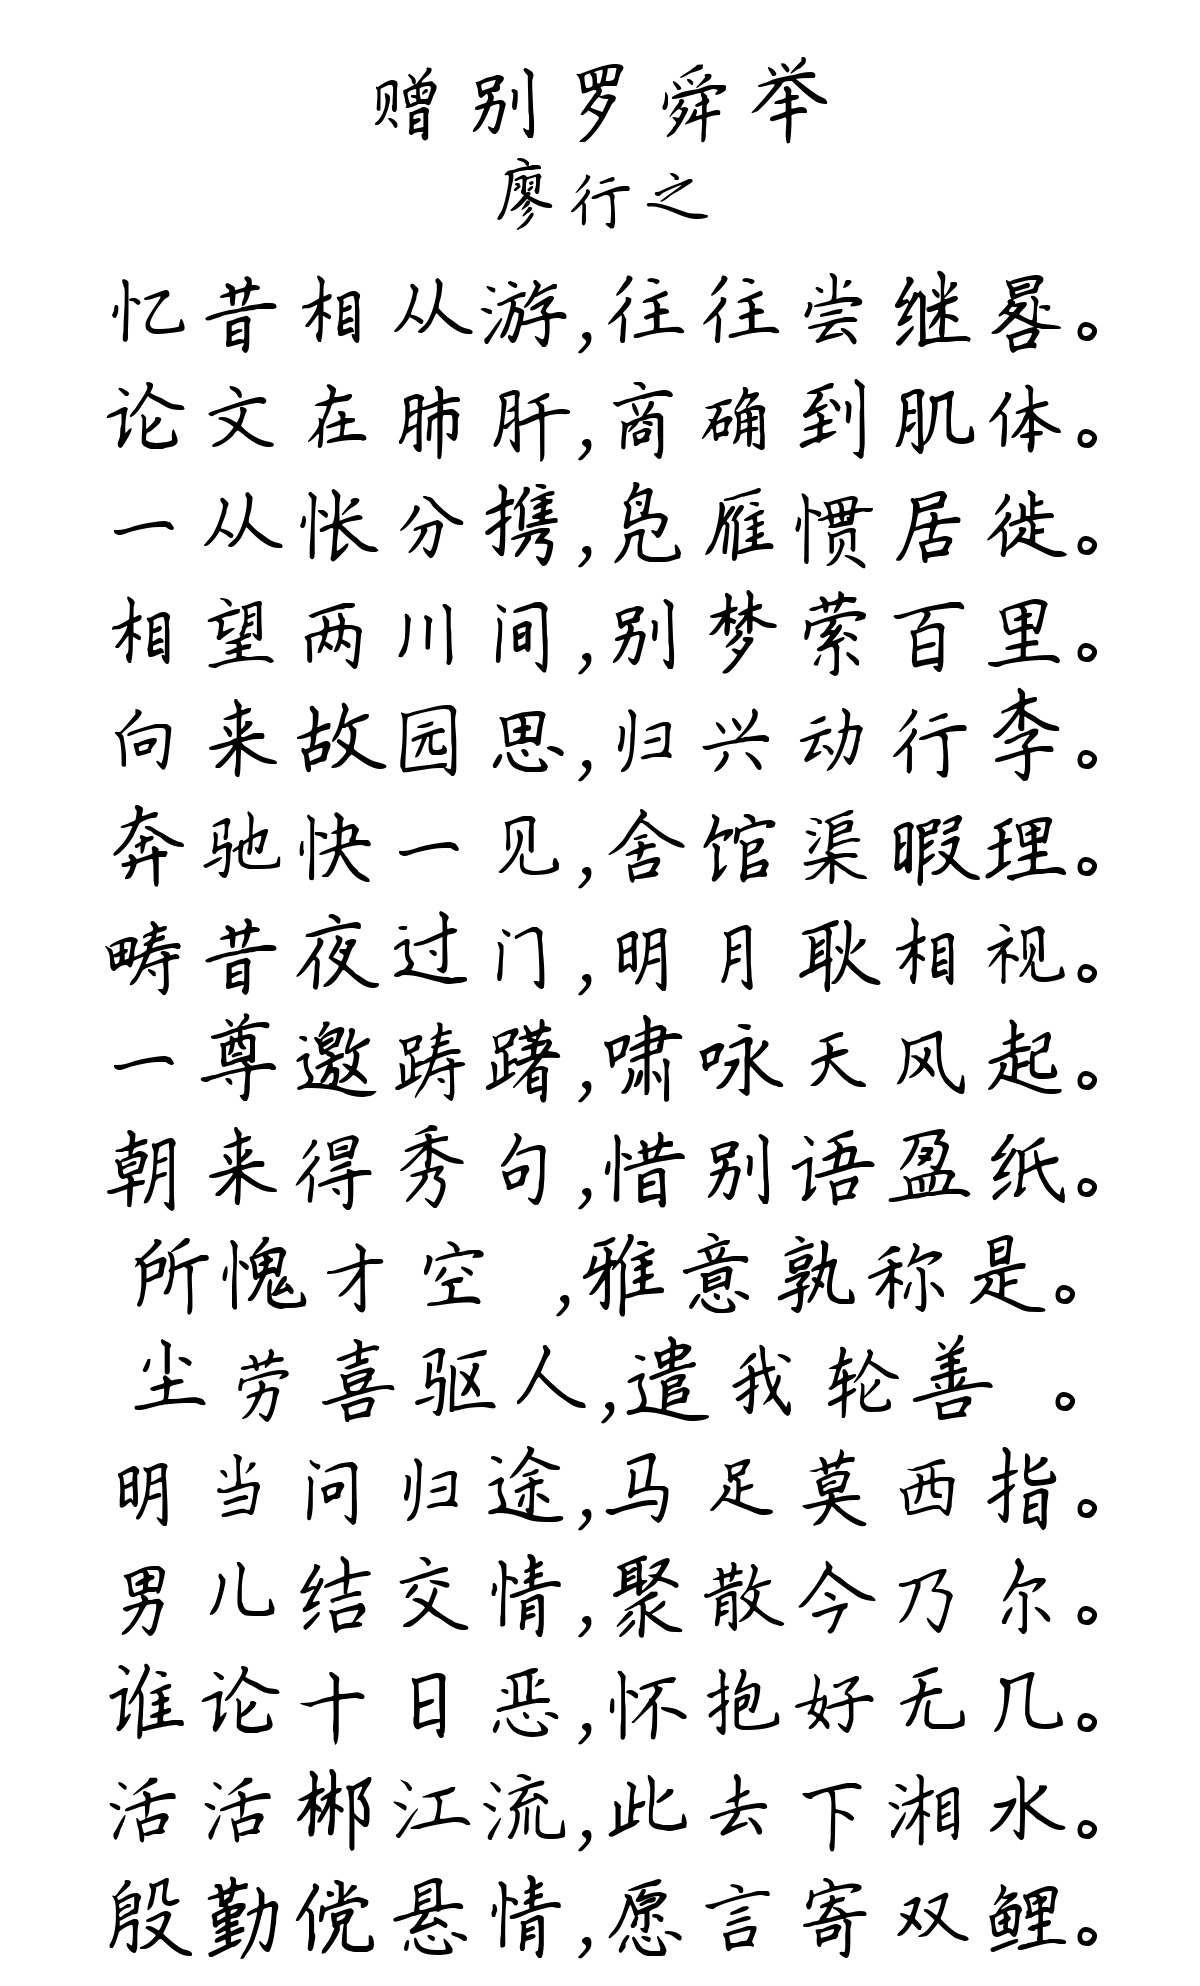 赠别罗舜举
廖行之
忆昔相从游,往往尝继晷。
论文在肺肝,商确到肌体。
一从怅分携,凫雁惯居徙。
相望两川间,别梦萦百里。
向来故园思,归兴动行李。
奔驰快一见,舍馆渠暇理。
畴昔夜过门,明月耿相视。
一尊邀踌躇,啸咏天风起。
朝来得秀句,惜别语盈纸。
所愧才空 ,雅意孰称是。
尘劳喜驱人,遣我轮善 。
明当问归途,马足莫西指。
男儿结交情,聚散今乃尔。
谁论十日恶,怀抱好无几。
活活郴江流,此去下湘水。
殷勤傥悬情,愿言寄双鲤。